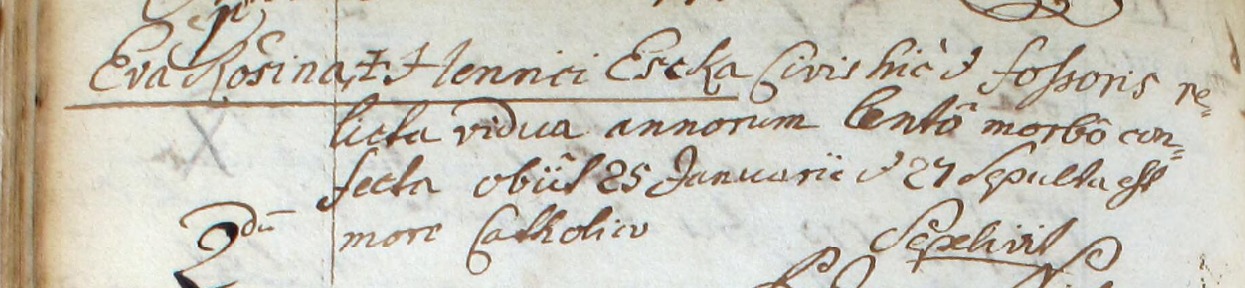 Eva Rosina, ‡. Henrici Escka Civis hic & fossoris re=
licta vidua annorum lentô morbô con=
fecta obiit 25 Januarii & 27 Sepulta est
2dũ more Catholico Sepelivit